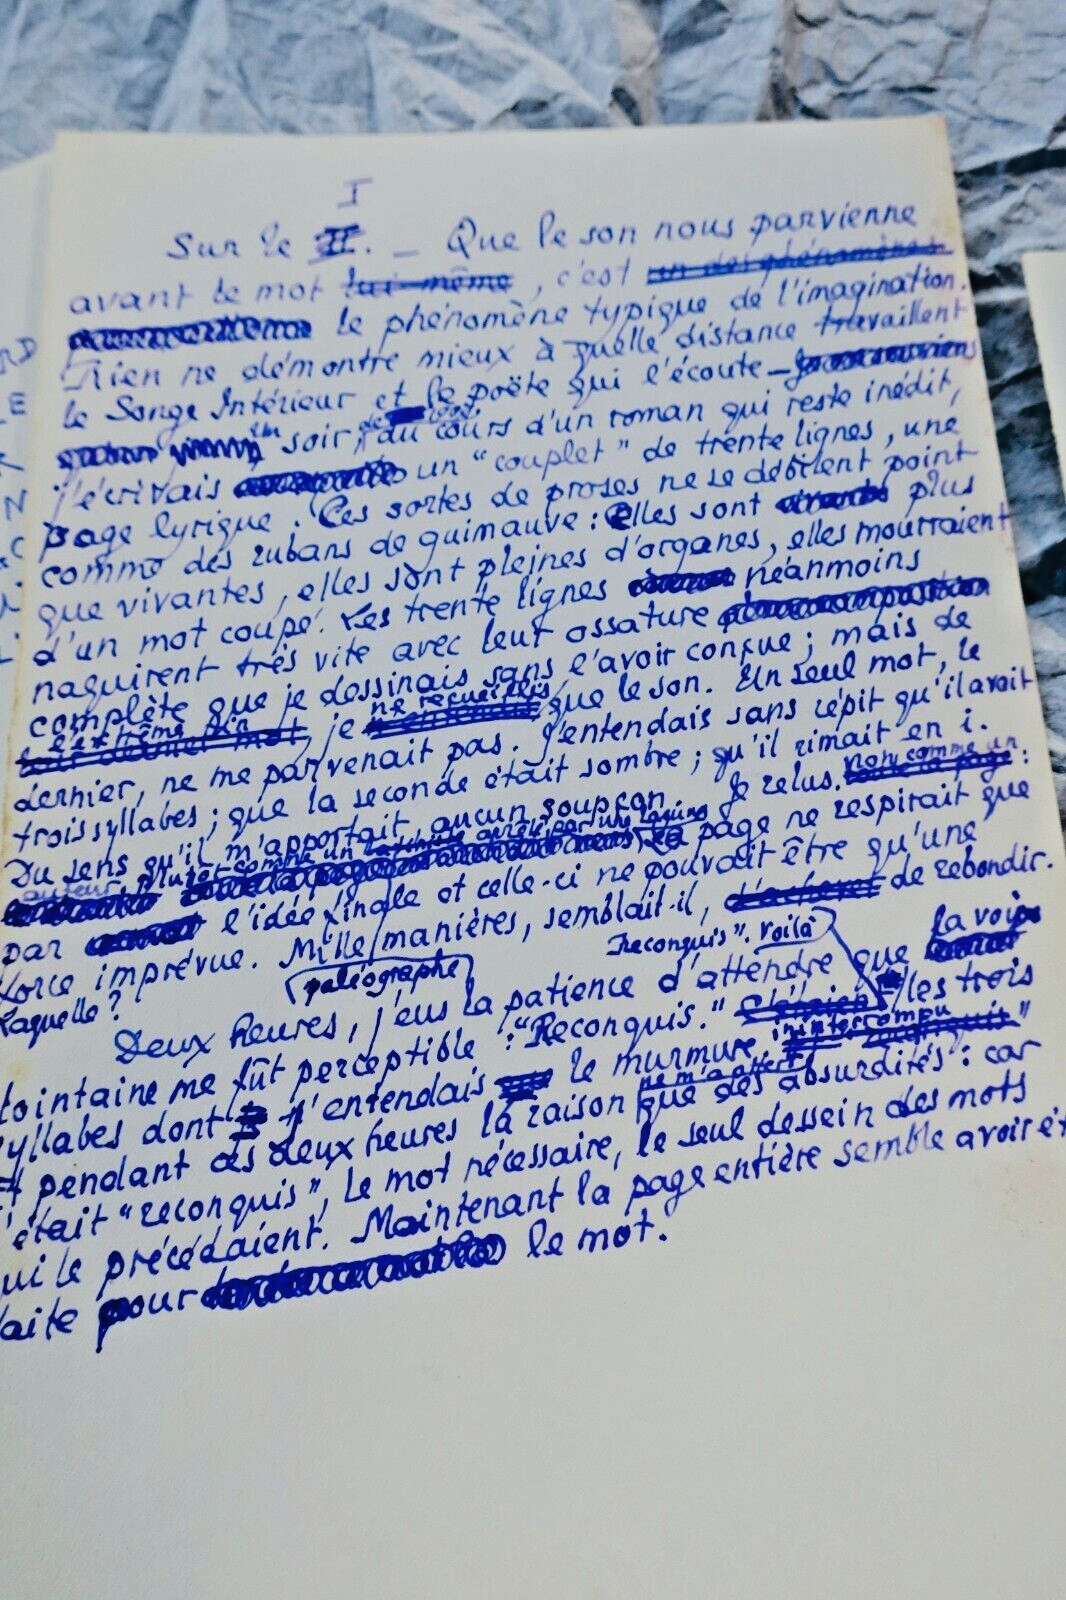 I
Sur le II. — Que le son nous parvienne
avant le mot lui-même, c'est un des phénomènes
le phénomène typique de l'imagination.
Rien ne démontre mieux à quelle distance travaillent
le Songe Intérieur et le poëte qui l'écoute —
un soir, au cours d'un roman qui reste inédit,
j'écrivais un "couplet" de trente lignes, une
page lyrique. Ces sortes de proses ne se débitent point
comme des rubans de guimauve : elles sont plus
que vivantes, elles sont pleines d'organes, elles mourraient
d'un mot coupé. Les trente lignes néanmoins
naquirent très vite avec leur ossature
complète que je dessinais sans l'avoir conçue ; mais de
l'extrême fin ne recueillis
leur dernier mot, je n'entendis que le son. Un seul mot, le
dernier, ne me parvenait pas. J'entendais sans répit qu'il avait
trois syllabes ; que la seconde était sombre ; qu'il rimait en i.
Du sens qu'il m'apportait, aucun soupçon. Je relus. non comme un
toute la page :
auteur, plutôt comme un arrêté par une lacune
La page ne respirait que
par l'idée finale et celle-ci ne pouvait être qu'une
force imprévue. Mille manières, semblait-il, d'achever de rebondir.
Laquelle ?
paléographe
Reconquis". Voilà
Deux heures, j'eus la patience d'attendre que la voix
lointaine me fût perceptible : "Reconquis." C'étaient les trois
syllabes dont j'entendais le murmure ininterrompu
"reconquis"
Et pendant ces deux heures la raison ne m'a offert que des absurdités : car
c'était "reconquis", le mot nécessaire, le seul dessein des mots
qui le précédaient. Maintenant la page entière semble avoir ét
faite pour le mot.